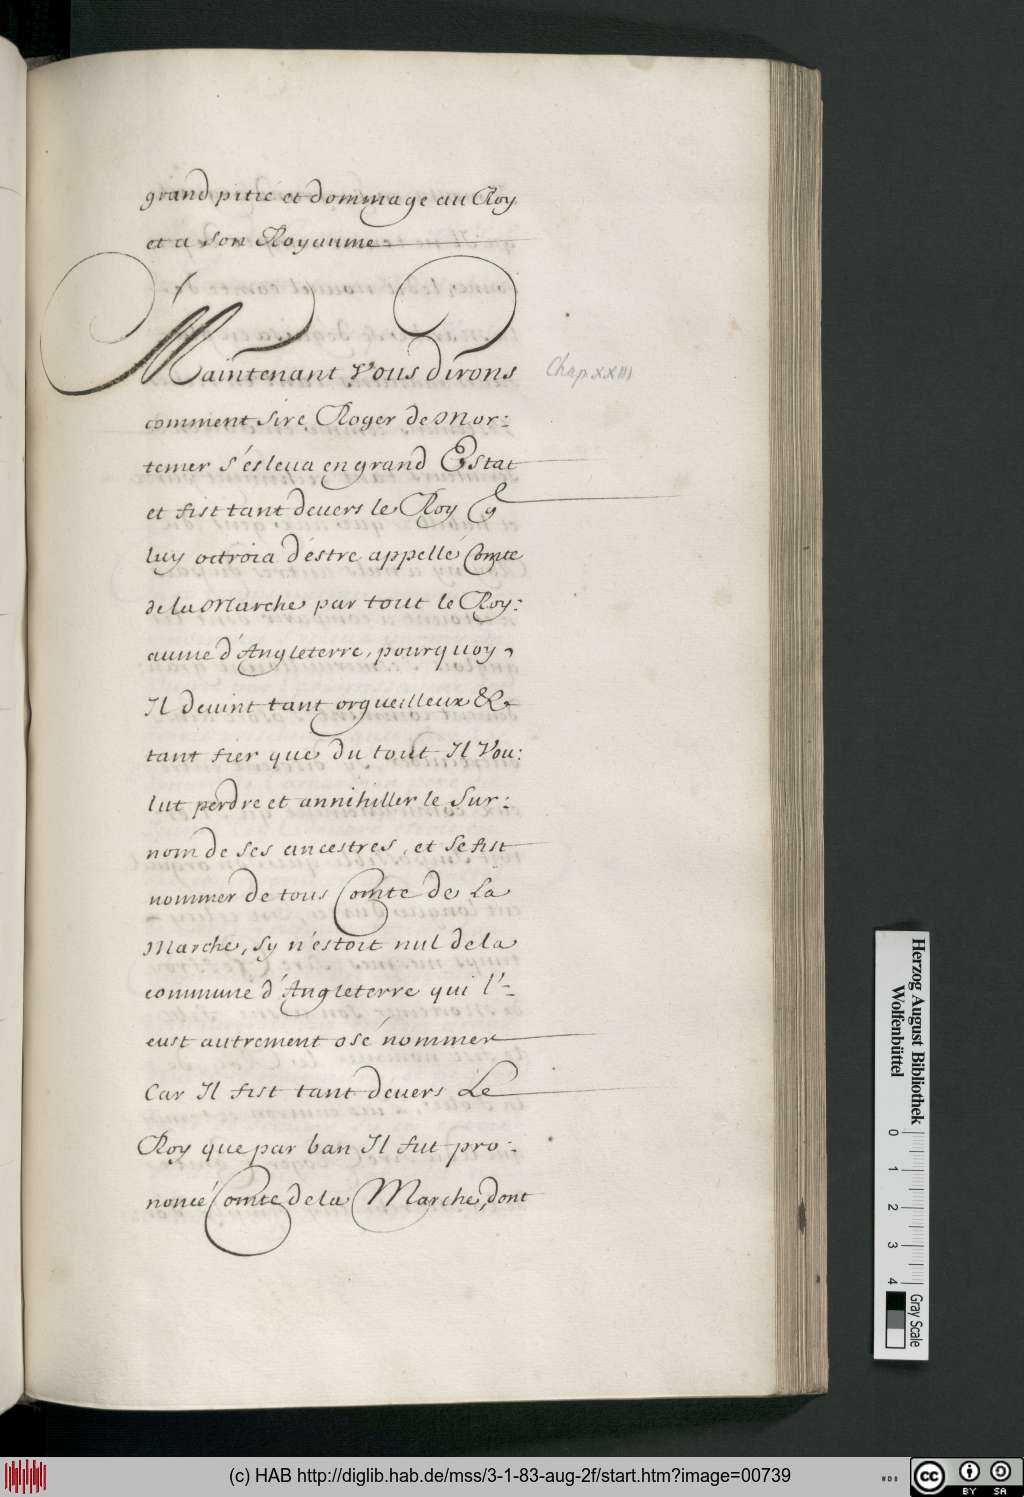 grand pitié et dommage au Roy
et a son Royaume
Maintenant Vous dirons
Chap. XXIII
comment sire Roger de Mor:
temer s'esleua en grand Estat
et fist tant deuers le Roy q
luy octroia d'éstre appellé Comte
de la Marche par tout le Roy:
aume d'Angleterre, pourquoy,
Il deuint tant orgueilleux &
tant fier que du tout Il Vou:
lut perdre et annihiller le sur:
nom de ses ancestres, et se fist
nommer de tous Comte de La
Marche, sy n'estoit nul de la
commune d'Angleterre qui l'-
eust autrement osé nommer
Car Il fist tant deuers Le
Roy que par ban Il fut pro:
noncé Comte de la Marche, dont
Herzog August Bibliothek
Wolfenbüttel
0 1 2 3 4
Gray Scale
(c) HAB http://diglib.hab.de/mss/3-1-83-aug-2f/start.htm?image=00739
WDB
cc BY SA